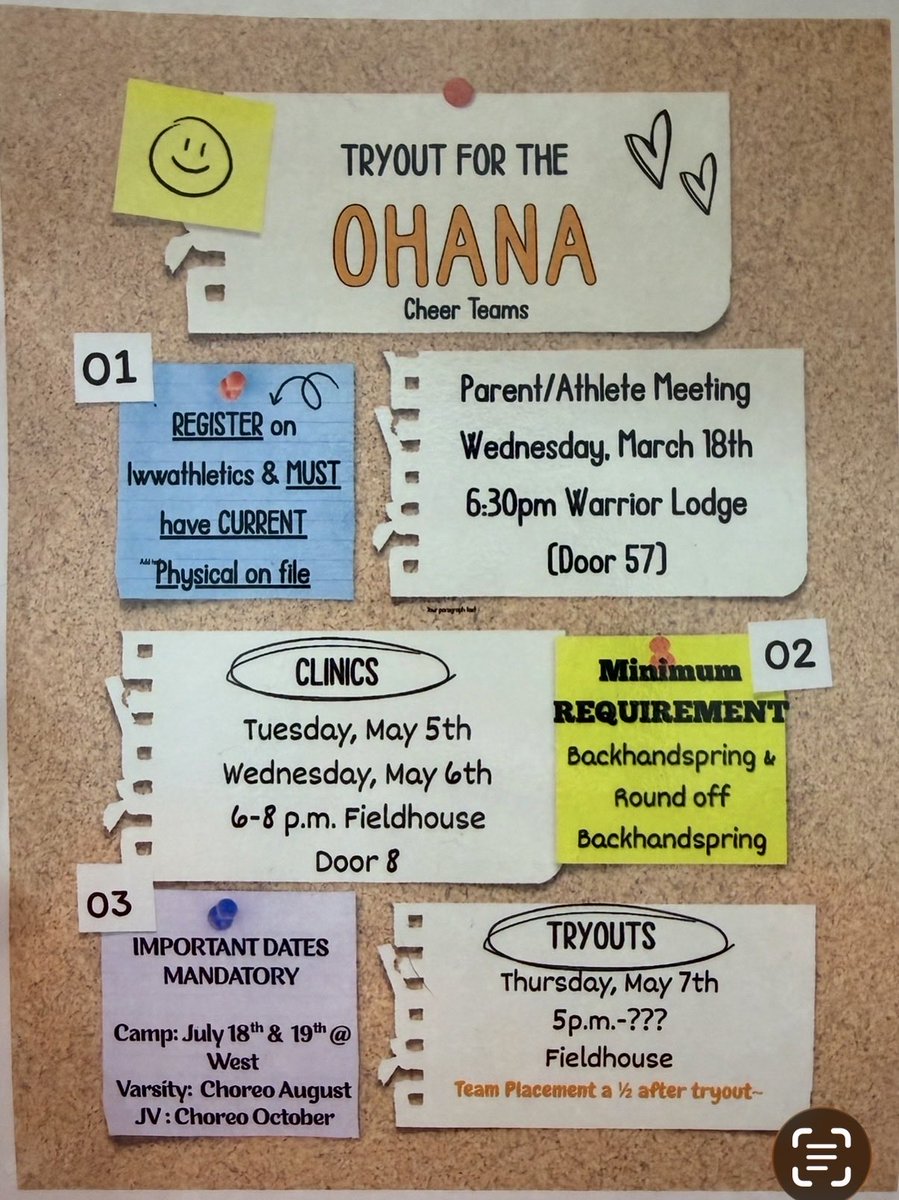 TRYOUT FOR THE
OHANA
Cheer Teams
01
REGISTER on
lwwathletics & MUST
have CURRENT
Physical on file
Parent/Athlete Meeting
Wednesday, March 18th
6:30pm Warrior Lodge
(Door 57)
Your paragraph text
CLINICS
Tuesday, May 5th
Wednesday, May 6th
6-8 p.m. Fieldhouse
Door 8
02
Minimum
REQUIREMENT
Backhandspring &
Round off
Backhandspring
03
IMPORTANT DATES
MANDATORY
Camp: July 18th & 19th @
West
Varsity: Choreo August
JV : Choreo October
TRYOUTS
Thursday, May 7th
5p.m.-???
Fieldhouse
Team Placement a ½ after tryout~